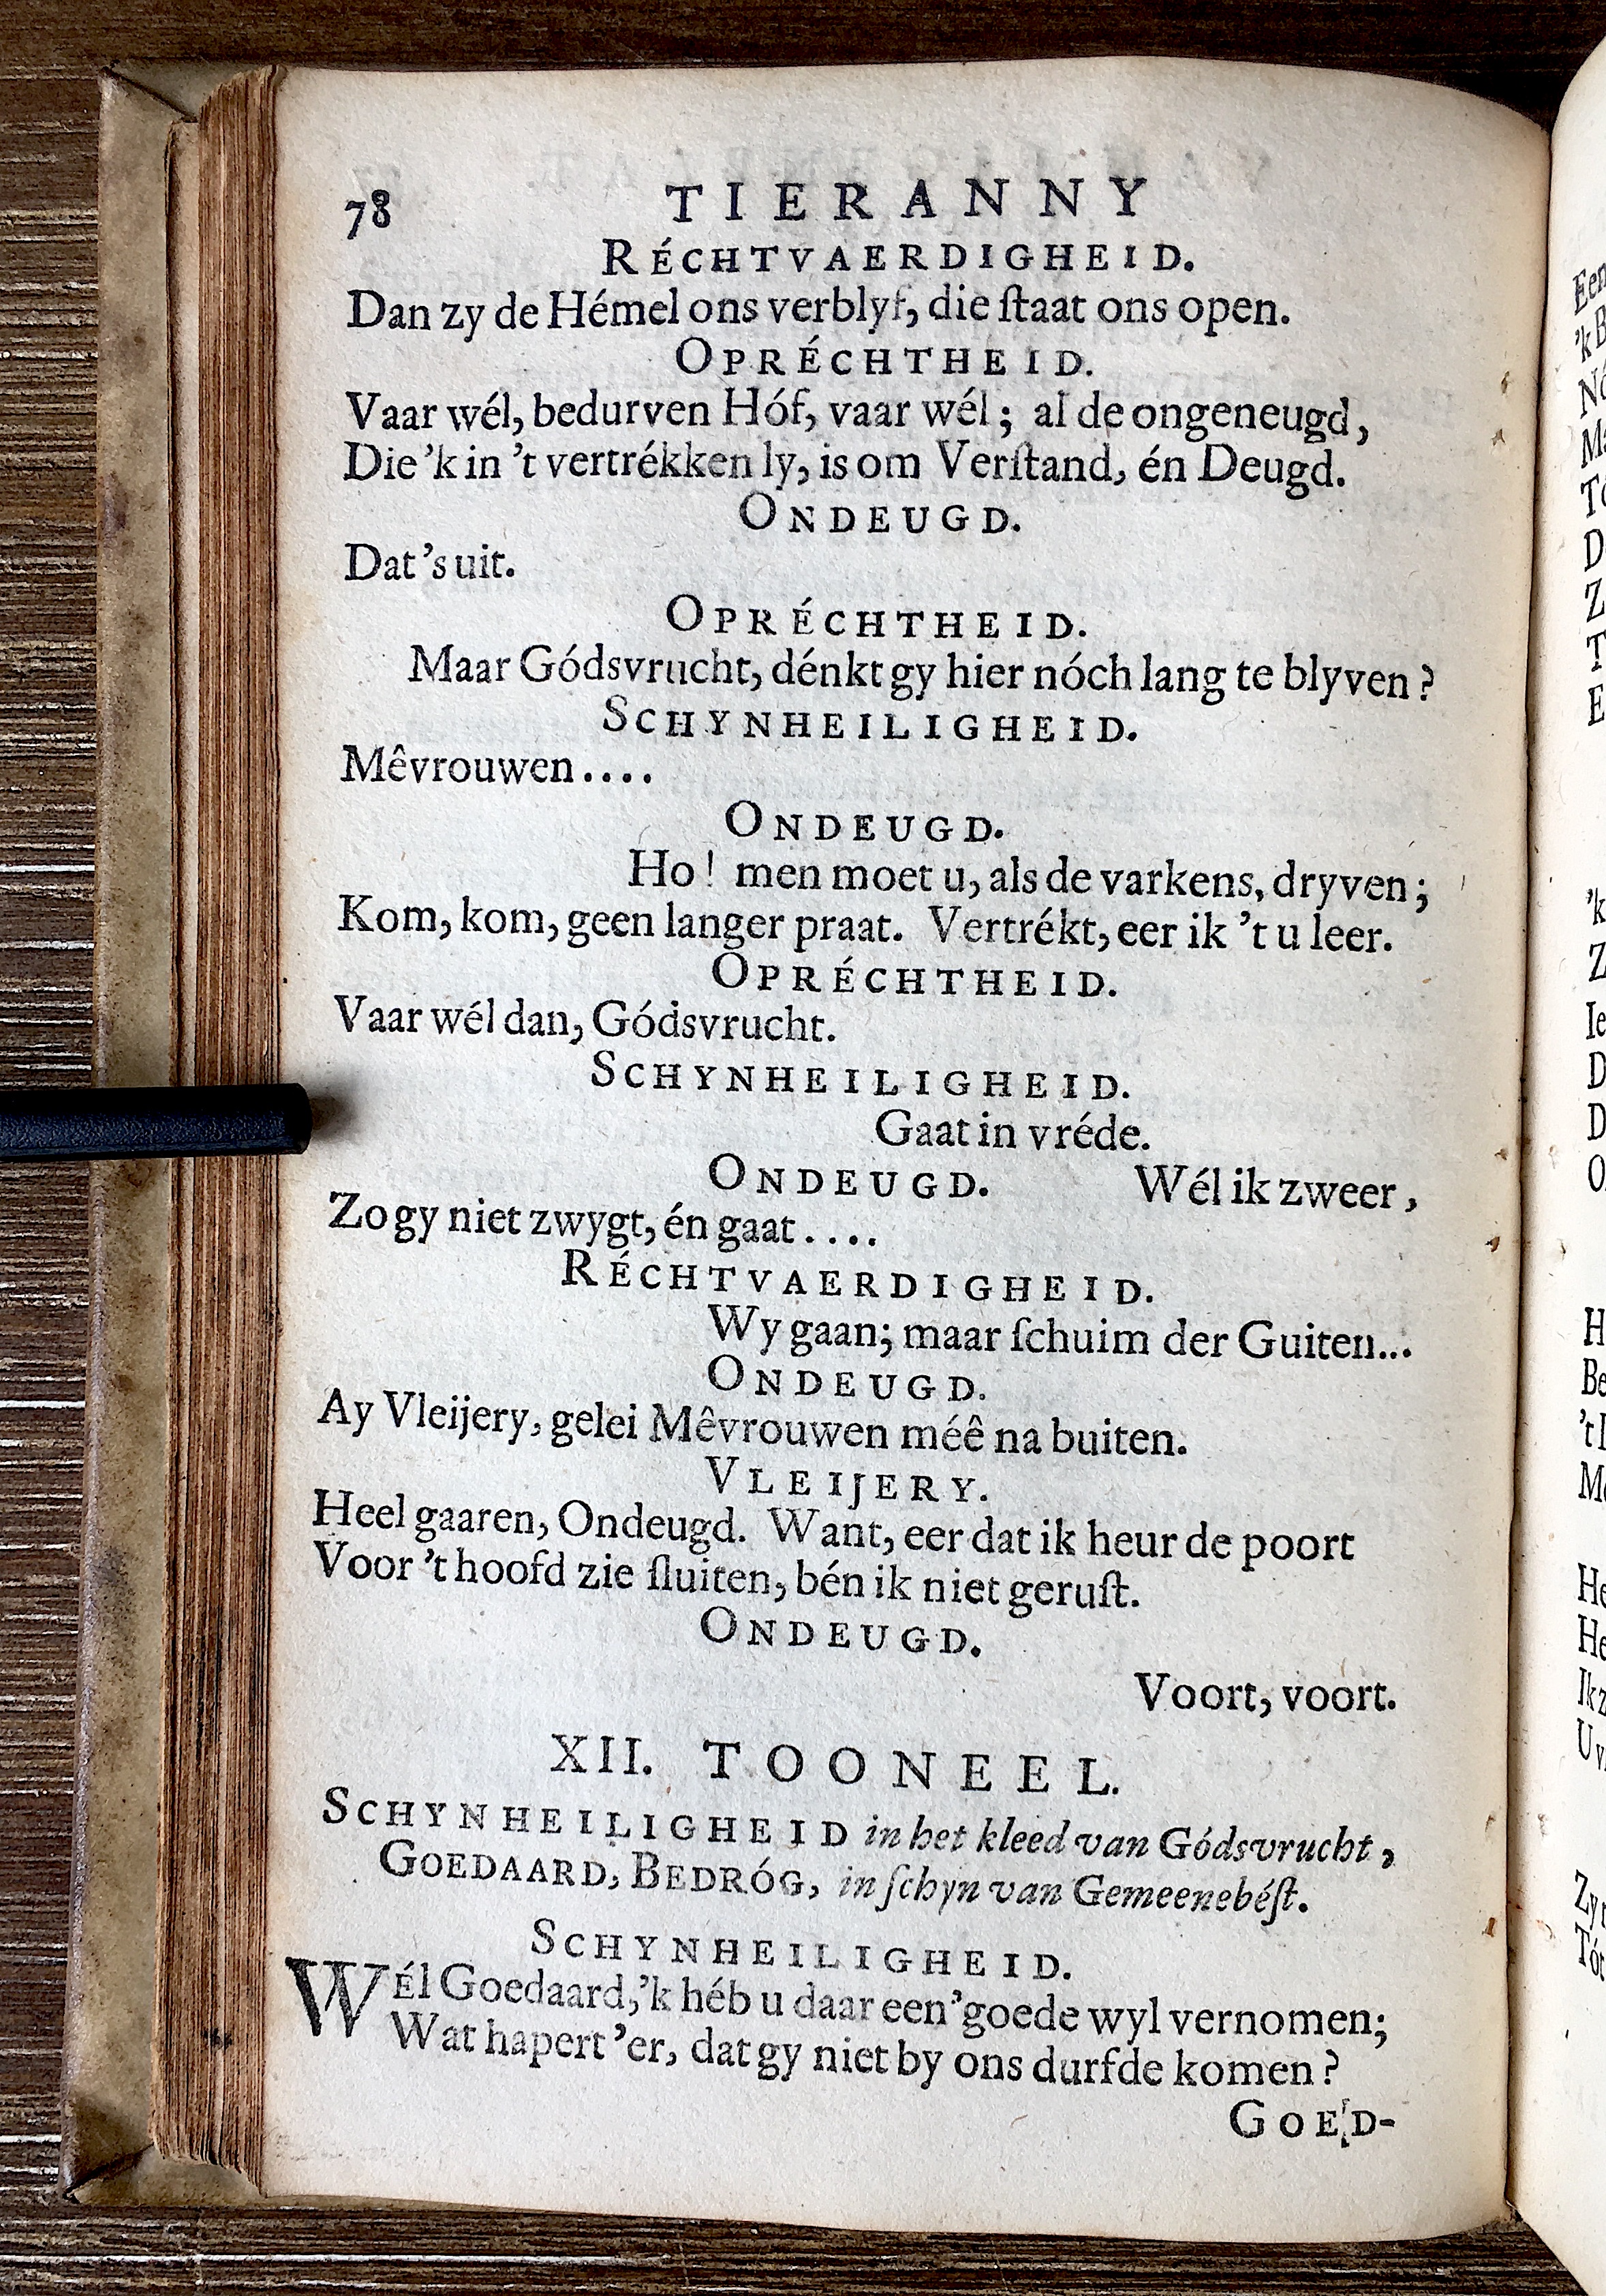 78 TIERANNY
RÉCHTVAERDIGHEID.
Dan zy de Hémel ons verblyf, die ſtaat ons open.
OPRÉCHTHEID.
Vaar wél, bedurven Hóf, vaar wél; al de ongeneugd,
Die 'k in 't vertrékken ly, is om Verſtand, én Deugd.
ONDEUGD.
Dat 's uit.
OPRÉCHTHEID.
Maar Gódsvrucht, dénkt gy hier nóch lang te blyven?
SCHYNHEILIGHEID.
Mêvrouwen....
ONDEUGD.
Ho! men moet u, als de varkens, dryven;
Kom, kom, geen langer praat. Vertrékt, eer ik 't u leer.
OPRÉCHTHEID.
Vaar wél dan, Gódsvrucht.
SCHYNHEILIGHEID.
Gaat in vréde.
ONDEUGD. Wél ik zweer,
Zo gy niet zwygt, én gaat....
RÉCHTVAERDIGHEID.
Wy gaan; maar ſchuim der Guiten...
ONDEUGD.
Ay Vleijery, gelei Mêvrouwen méê na buiten.
VLEIJERY.
Heel gaaren, Ondeugd. Want, eer dat ik heur de poort
Voor 't hoofd zie ſluiten, bén ik niet geruſt.
ONDEUGD.
Voort, voort.
XII. TOONEEL.
SCHYNHEILIGHEID in het kleed van Gódsvrucht,
GOEDAARD, BEDRÓG, in ſchyn van Gemeenebéſt.
SCHYNHEILIGHEID.
WÉl Goedaard, 'k héb u daar een' goede wyl vernomen;
Wat hapert 'er, dat gy niet by ons durfde komen?
GOED-